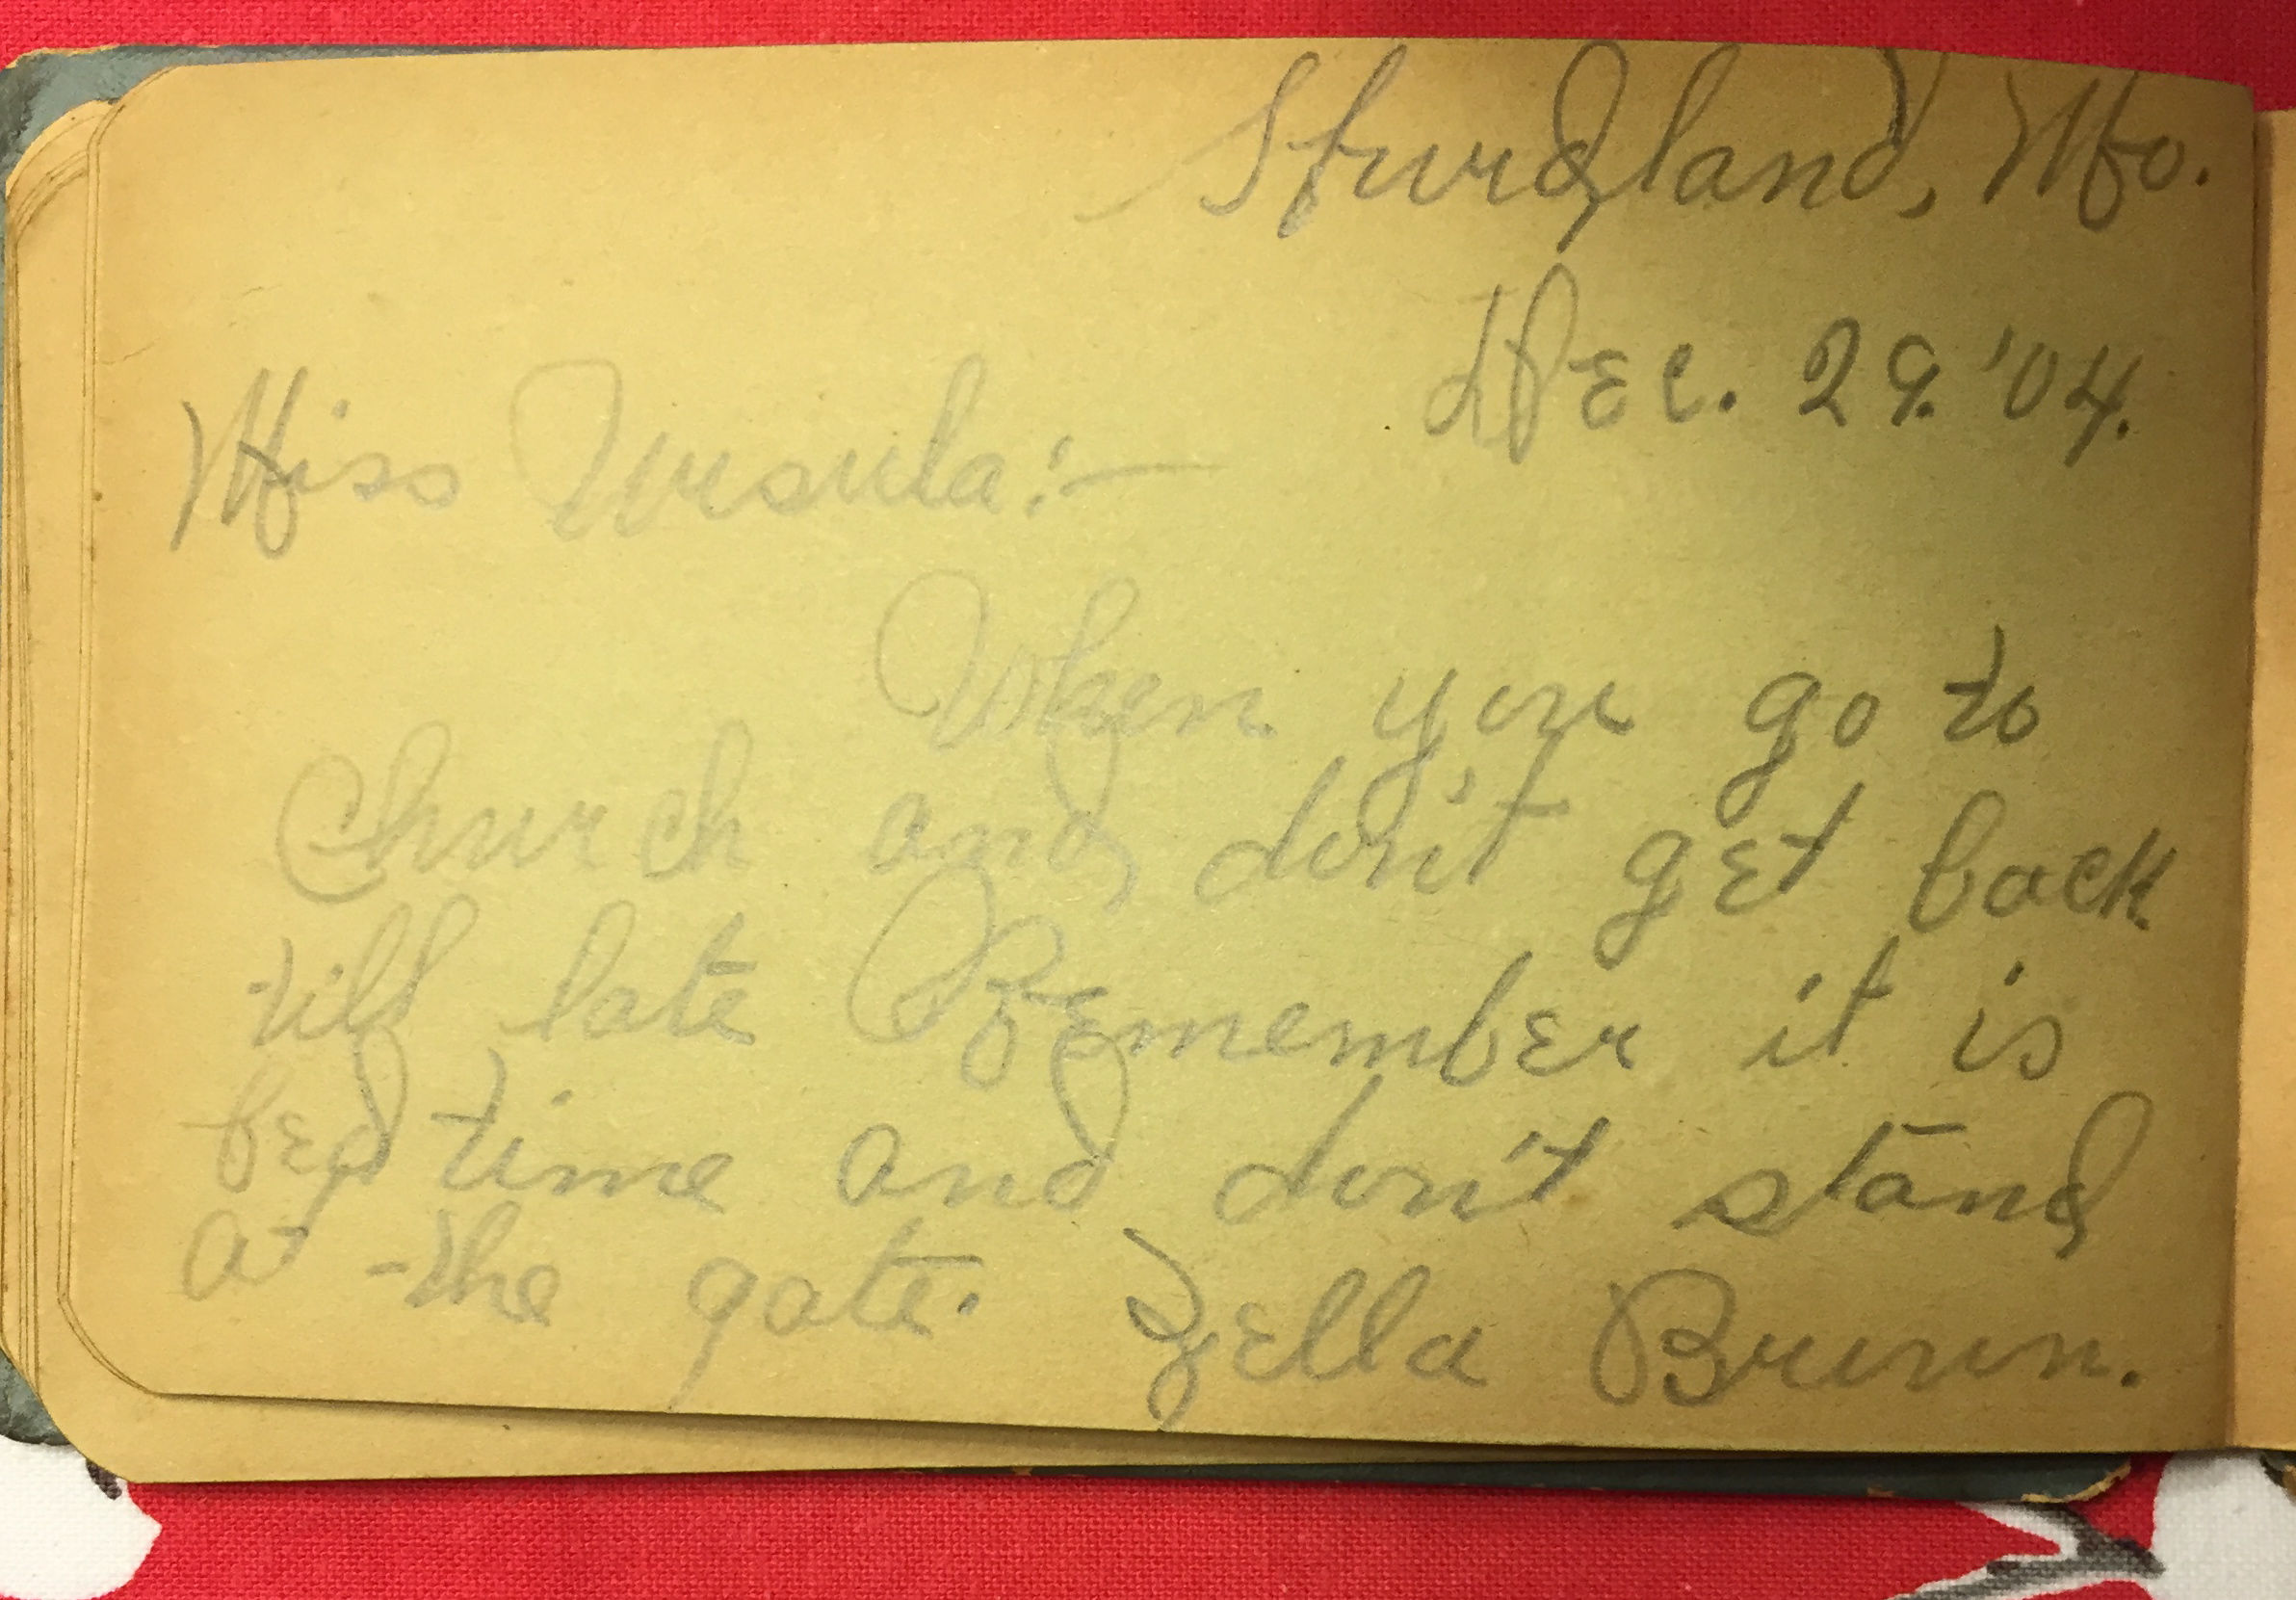 Spurgland, Mo.
Dec. 29. '04.
Miss Ursula:—
When you go to
Church and don't get back
till late Remember it is
bed time and don't stand
at the gate. Zella Brunn.